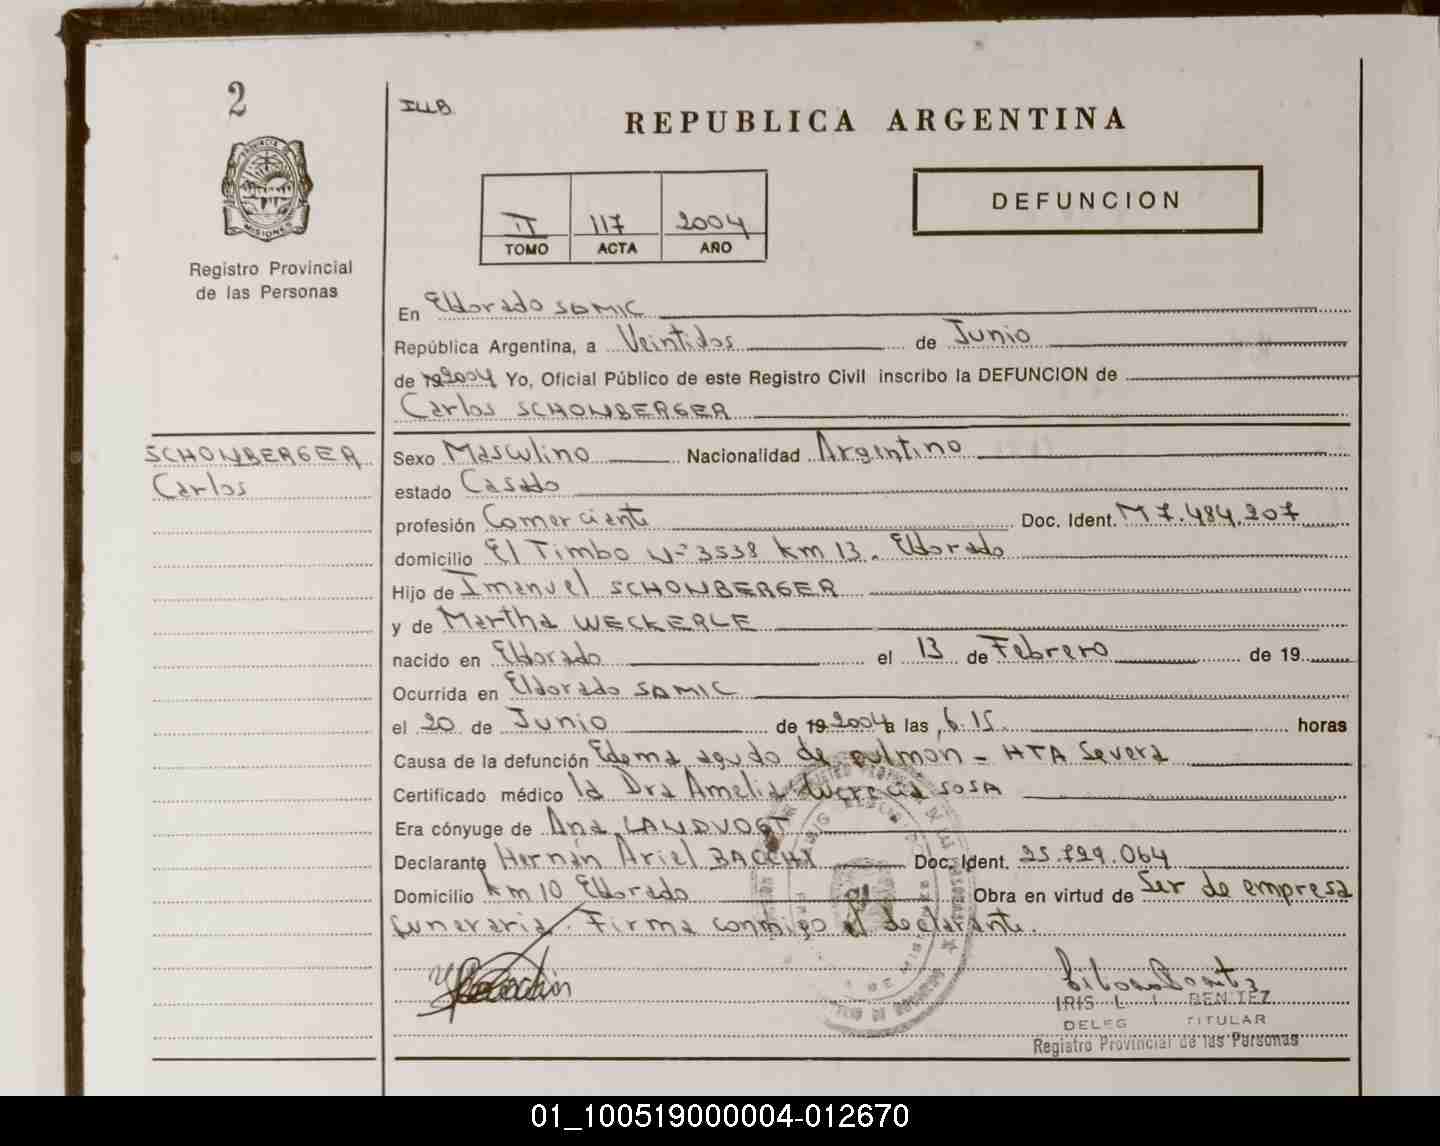 2
ILLB
REPUBLICA ARGENTINA
PROVINCIA DE
MISIONES
Registro Provincial
de las Personas
II 117 2004
TOMO ACTA AÑO
DEFUNCION
En Eldorado SAMIC
República Argentina, a Veintidos de Junio
de 19 2004 Yo, Oficial Público de este Registro Civil inscribo la DEFUNCION de
Carlos SCHONBERGER
SCHONBERGER
Carlos
Sexo Masculino Nacionalidad Argentino
estado Casado
profesión Comerciante Doc. Ident. M 7.484.207
domicilio El Timbo Nº 3538 km 13. Eldorado
Hijo de Imanuel SCHONBERGER
y de Martha WECKERLE
nacido en Eldorado el 13 de Febrero de 19
Ocurrida en Eldorado SAMIC
el 20 de Junio de 19 2004 a las 6.15 horas
Causa de la defunción Edema agudo de pulmon - HTA Severa
Certificado médico la Dra Amelia Lucrecia SOSA
Era cónyuge de Ana LANDVOGT
Declarante Hernán Ariel BACCHI Doc. Ident. 25.729.064
Domicilio km 10 Eldorado Obra en virtud de Ser de empresa
funeraria. Firma conmigo el declarante.
IRIS L BENITEZ
DELEG TITULAR
Registro Provincial de las Personas
01_100519000004-012670